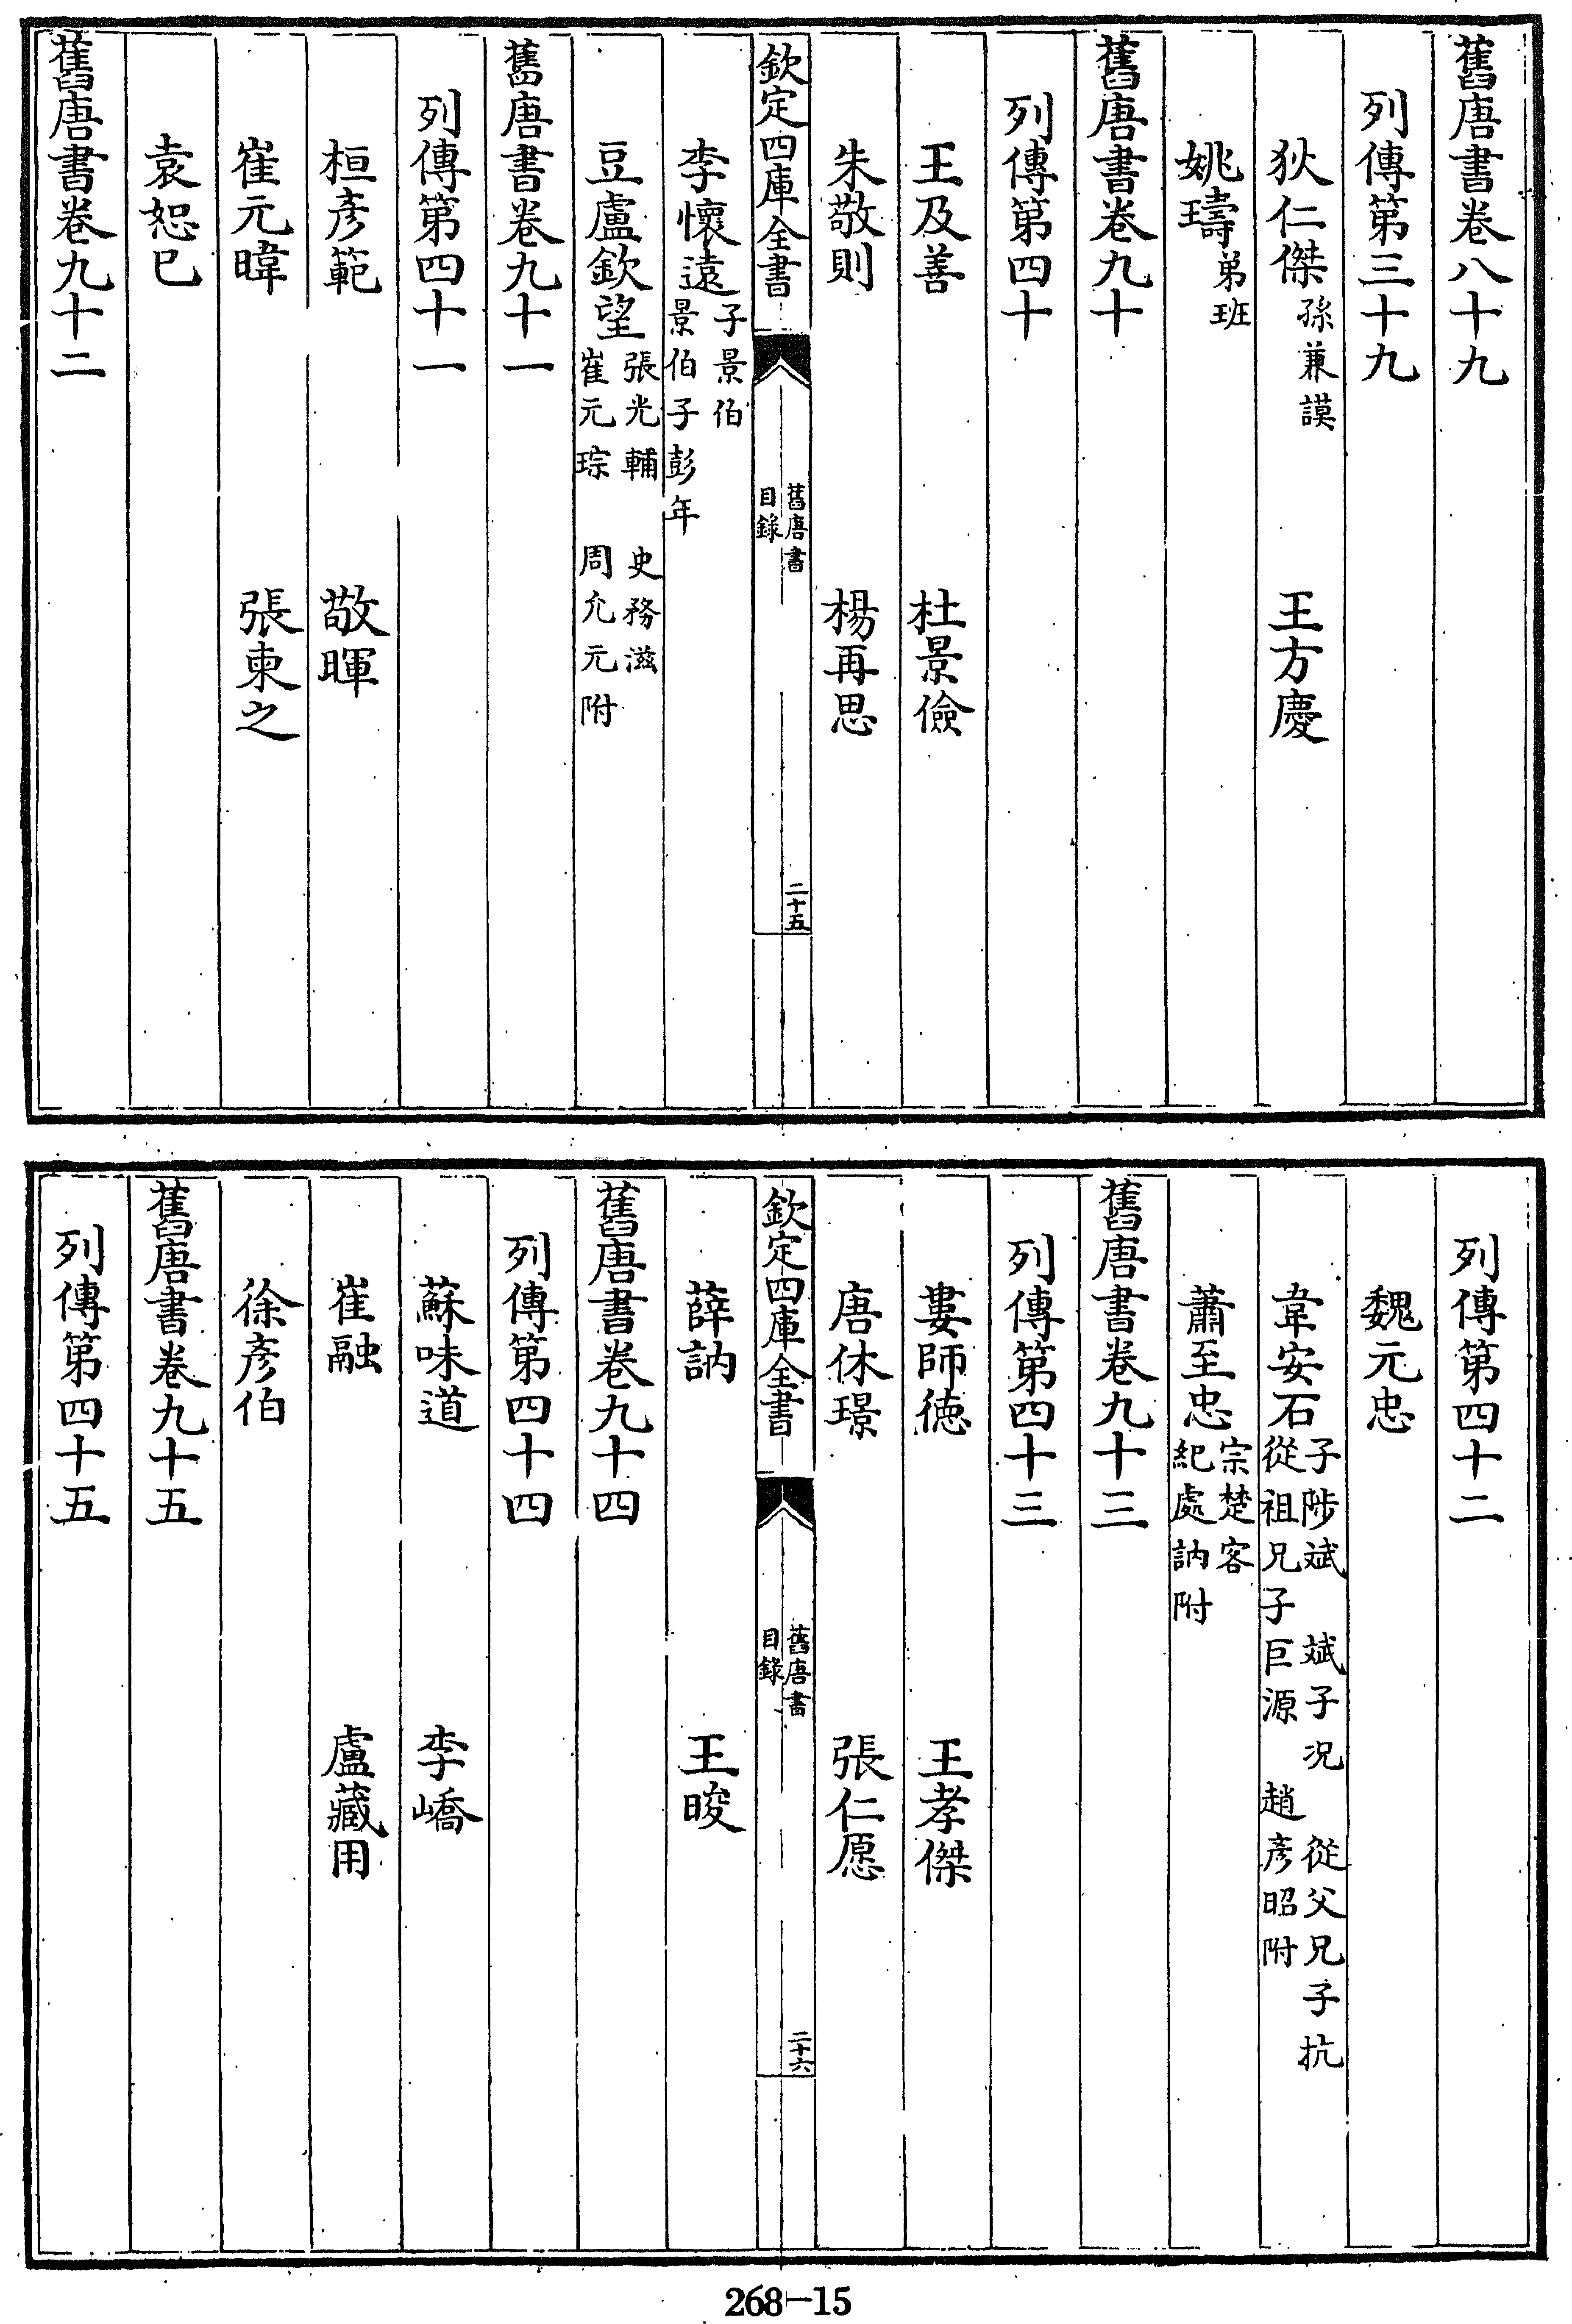 舊唐書卷八十九
列傳第三十九
狄仁傑孫兼謨 王方慶
姚璹弟班
舊唐書卷九十
列傳第四十
王及善 杜景儉
朱敬則 楊再思
欽定四庫全書 舊唐書目錄 二十五
李懷遠子景伯 景伯子彭年
豆盧欽望張光輔 史務滋 崔元琮 周允元附
舊唐書卷九十一
列傳第四十一
桓彥範 敬暉
崔元暐 張柬之
袁恕已
舊唐書卷九十二
列傳第四十二
魏元忠
韋安石子陟斌 斌子况 從父兄子抗 從祖兄子巨源 趙彥昭附
蕭至忠宗楚客 紀處訥附
舊唐書卷九十三
列傳第四十三
婁師徳 王孝傑
唐休璟 張仁愿
欽定四庫全書 舊唐書目錄 二十六
薛訥 王晙
舊唐書卷九十四
列傳第四十四
蘇味道 李嶠
崔融 盧藏用
徐彥伯
舊唐書卷九十五
列傳第四十五
268-15